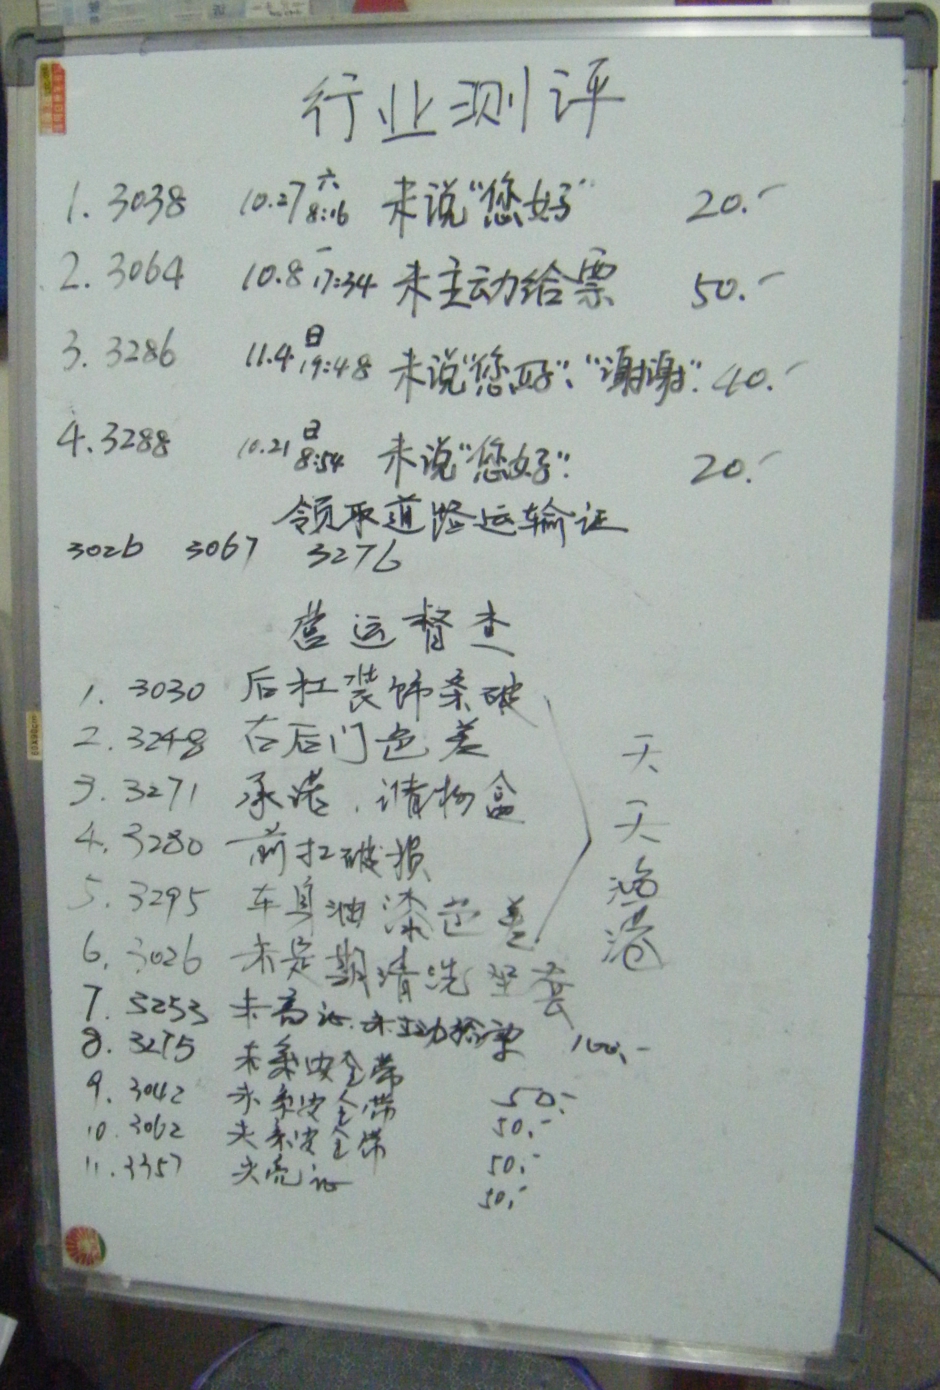 行业测评
1. 3038 10.27 六 8:16 未说"您好" 20.-
2. 3064 10.8 一 17:34 未主动给票 50.-
3. 3286 11.4 日 19:48 未说"您好"、"谢谢". 40.-
4. 3288 10.21 日 8:54 未说"您好". 20.-
领取道路运输证
3026 3067 3276
营运督查
1. 3030 后杠装饰条破
2. 3248 右后门色差
3. 3271 承诺、清物盒
4. 3280 前杠破损
5. 3295 车身油漆色差
6. 3026 未定期清洗座套
7. 3253 未亮证.未主动给票 100.-
8. 3275 未系安全带 50.-
9. 3042 未系安全带 50.-
10. 3062 未系安全带 50.-
11. 3357 未亮证 50.-
天天渔港